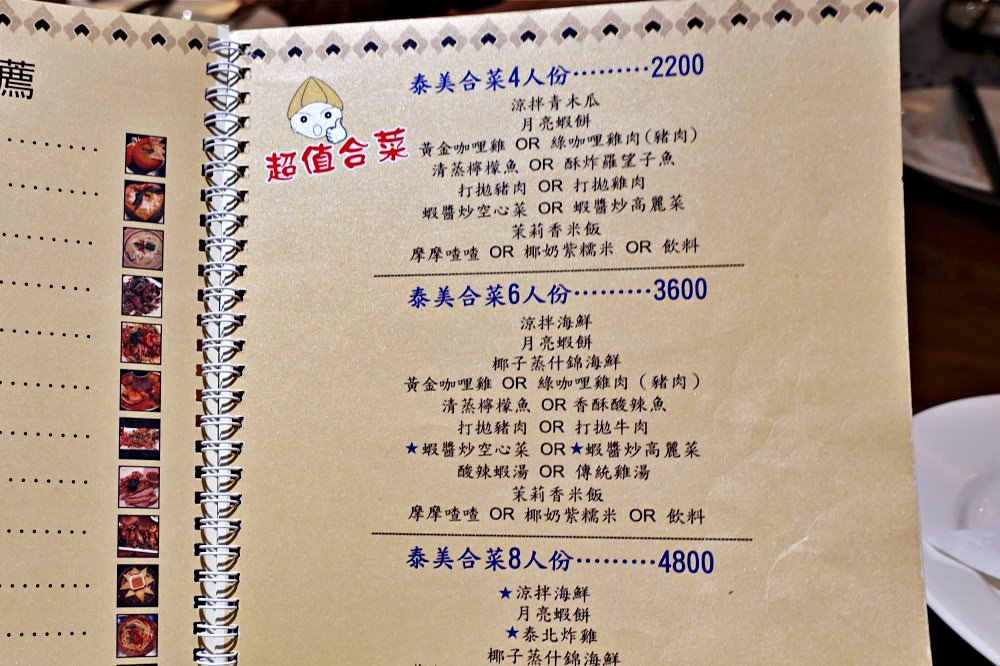 薦
超值合菜
泰美合菜4人份·········2200
涼拌青木瓜
月亮蝦餅
黃金咖哩雞 OR 綠咖哩雞肉(豬肉)
清蒸檸檬魚 OR 酥炸羅望子魚
打拋豬肉 OR 打拋雞肉
蝦醬炒空心菜 OR 蝦醬炒高麗菜
茉莉香米飯
摩摩喳喳 OR 椰奶紫糯米 OR 飲料
泰美合菜6人份·········3600
涼拌海鮮
月亮蝦餅
椰子蒸什錦海鮮
黃金咖哩雞 OR 綠咖哩雞肉(豬肉)
清蒸檸檬魚 OR 香酥酸辣魚
打拋豬肉 OR 打拋牛肉
★蝦醬炒空心菜 OR ★蝦醬炒高麗菜
酸辣蝦湯 OR 傳統雞湯
茉莉香米飯
摩摩喳喳 OR 椰奶紫糯米 OR 飲料
泰美合菜8人份·········4800
★涼拌海鮮
月亮蝦餅
★泰北炸雞
椰子蒸什錦海鮮